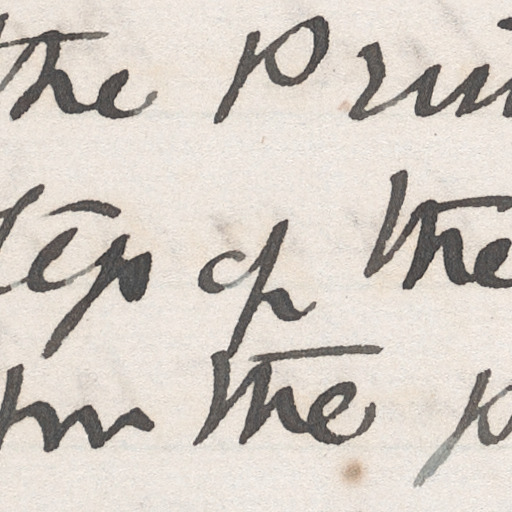 the Prin
step of the
from the p